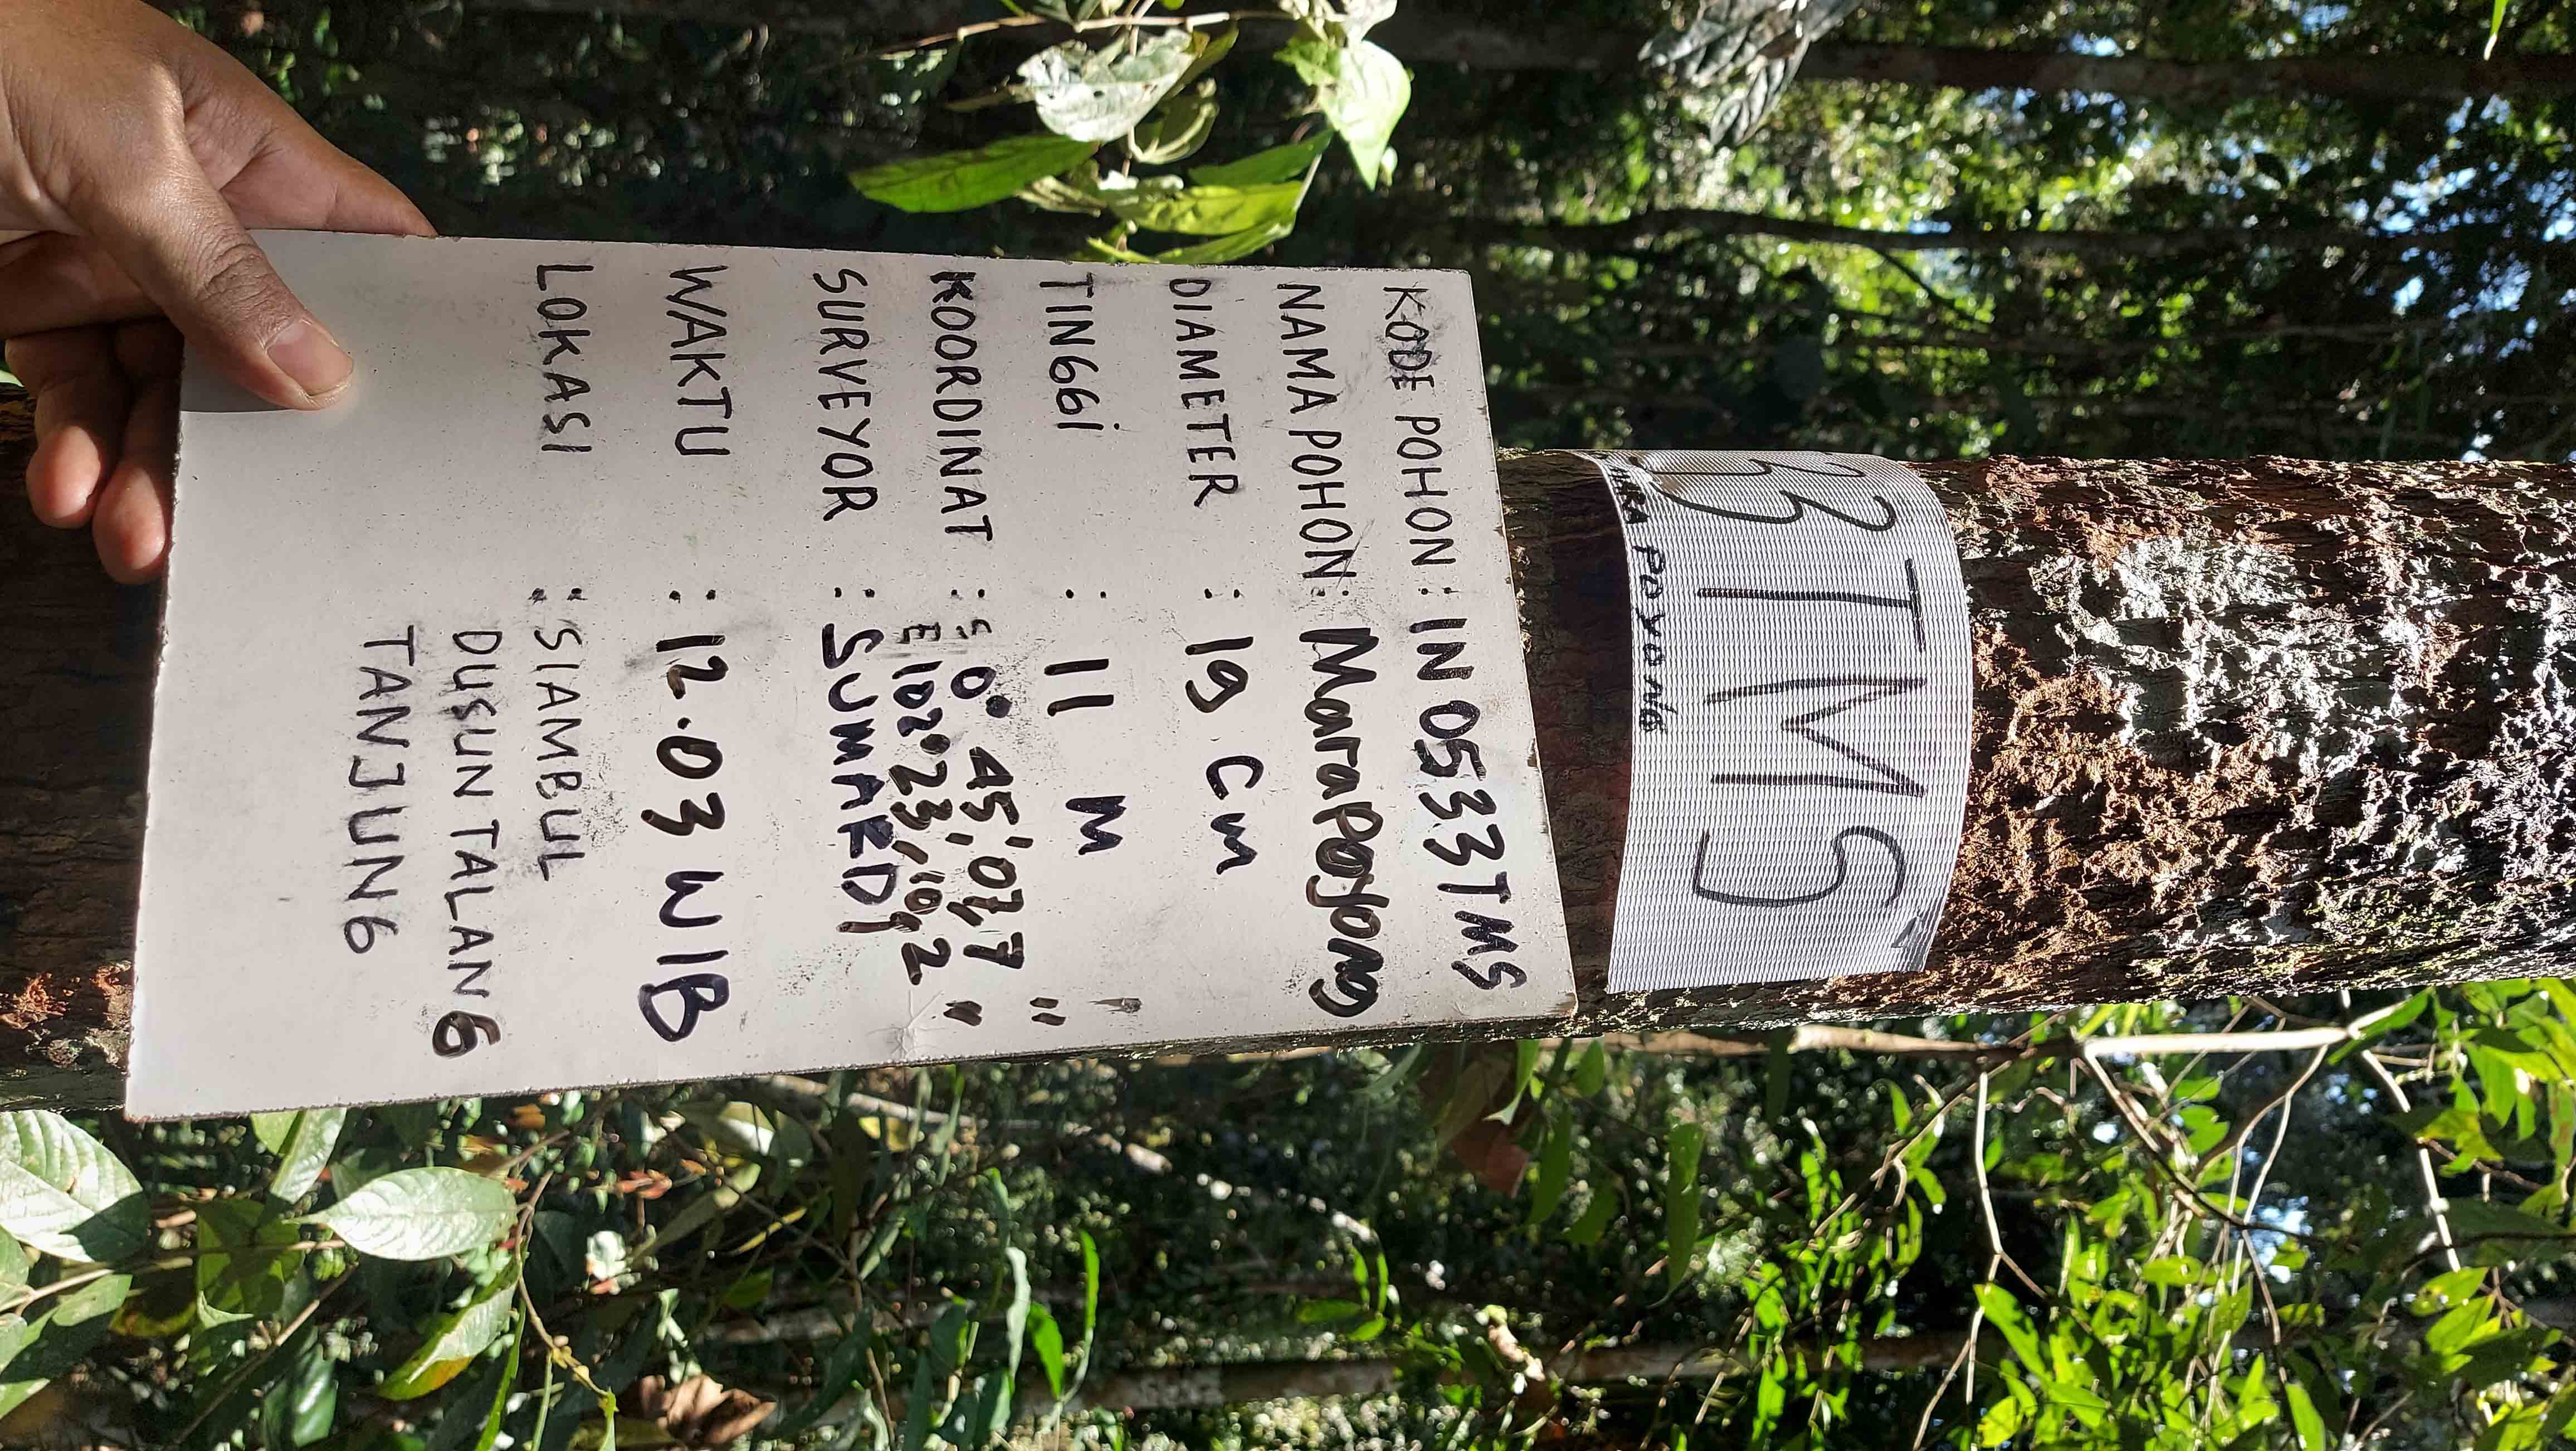 33TMS
MARA POYONG
KODE POHON : IN 0533TMS
NAMA POHON : Marapoyong
DIAMETER : 19 Cm
TINGGi : 11 M
KOORDINAT : S 0° 45' 07,7 "
E 102° 23, 10,2 "
SURVEYOR : SUMARDi
WAKTU : 12.03 WIB
LOKASI : SIAMBUL
DUSUN TALANG
TANJUNG